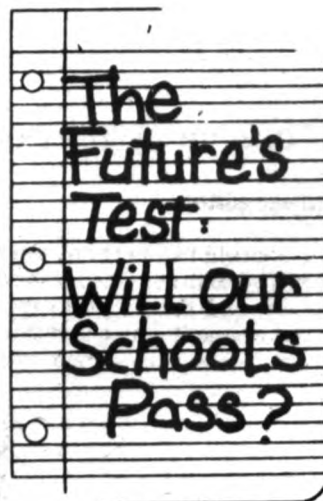 The
Future's
Test:
Will Our
Schools
Pass?